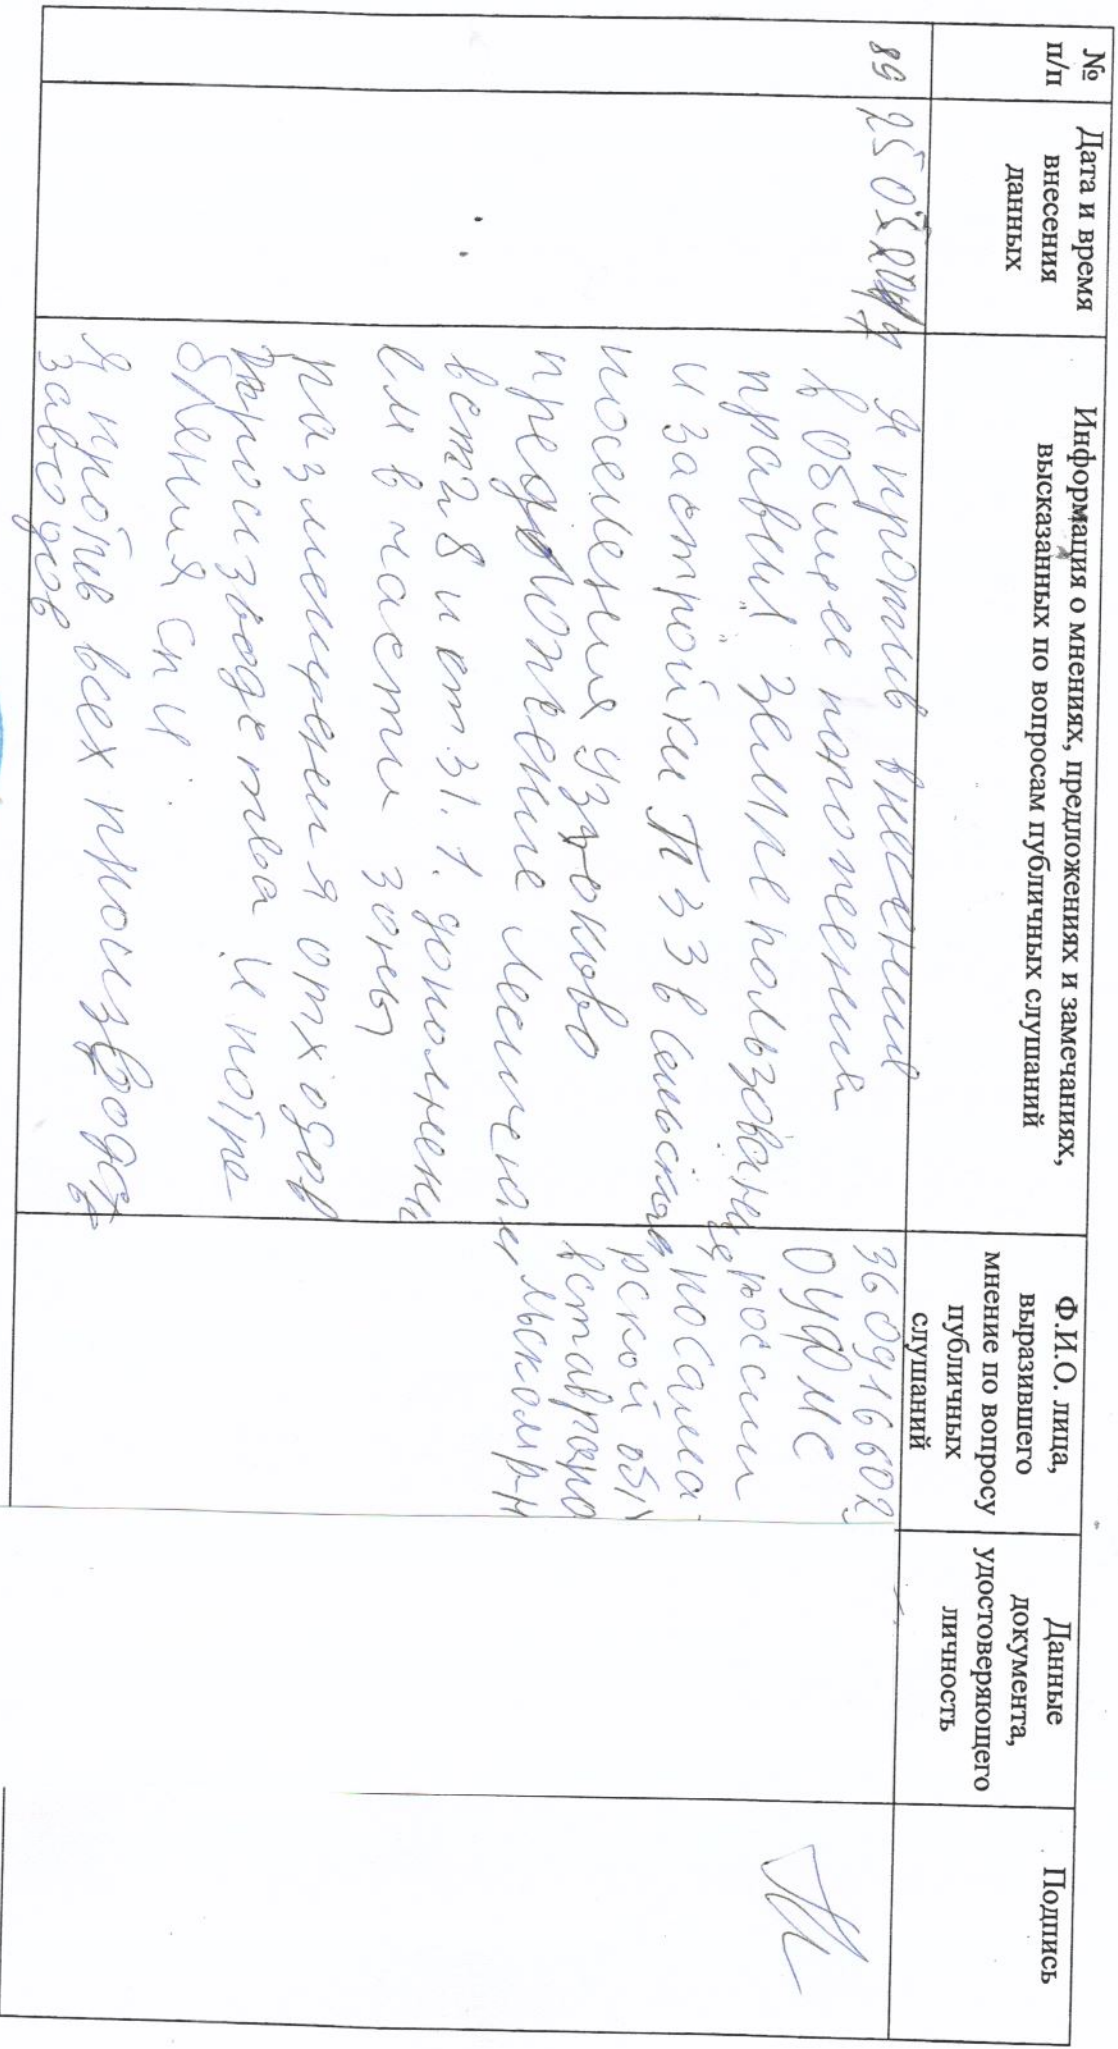 №
п/п
Дата и время
внесения
данных
Информация о мнениях, предложениях и замечаниях,
высказанных по вопросам публичных слушаний
Ф.И.О. лица,
выразившего
мнение по вопросу
публичных
слушаний
Данные
документа,
удостоверяющего
личность
Подпись
89
25
Я против внесения
в общее положения
правил землепользования
и застройки ПЗЗ в сельском
поселения Узюково
предложение
в ст 28 и ст 31.1. дополнен
в части зоны
размещения отходов
производства и потре
бления сп4.
Я против всех производст
заводов
36 09 166 02
ОУФМС
россии
по сама
рской обл
в ставропо
льском р-н